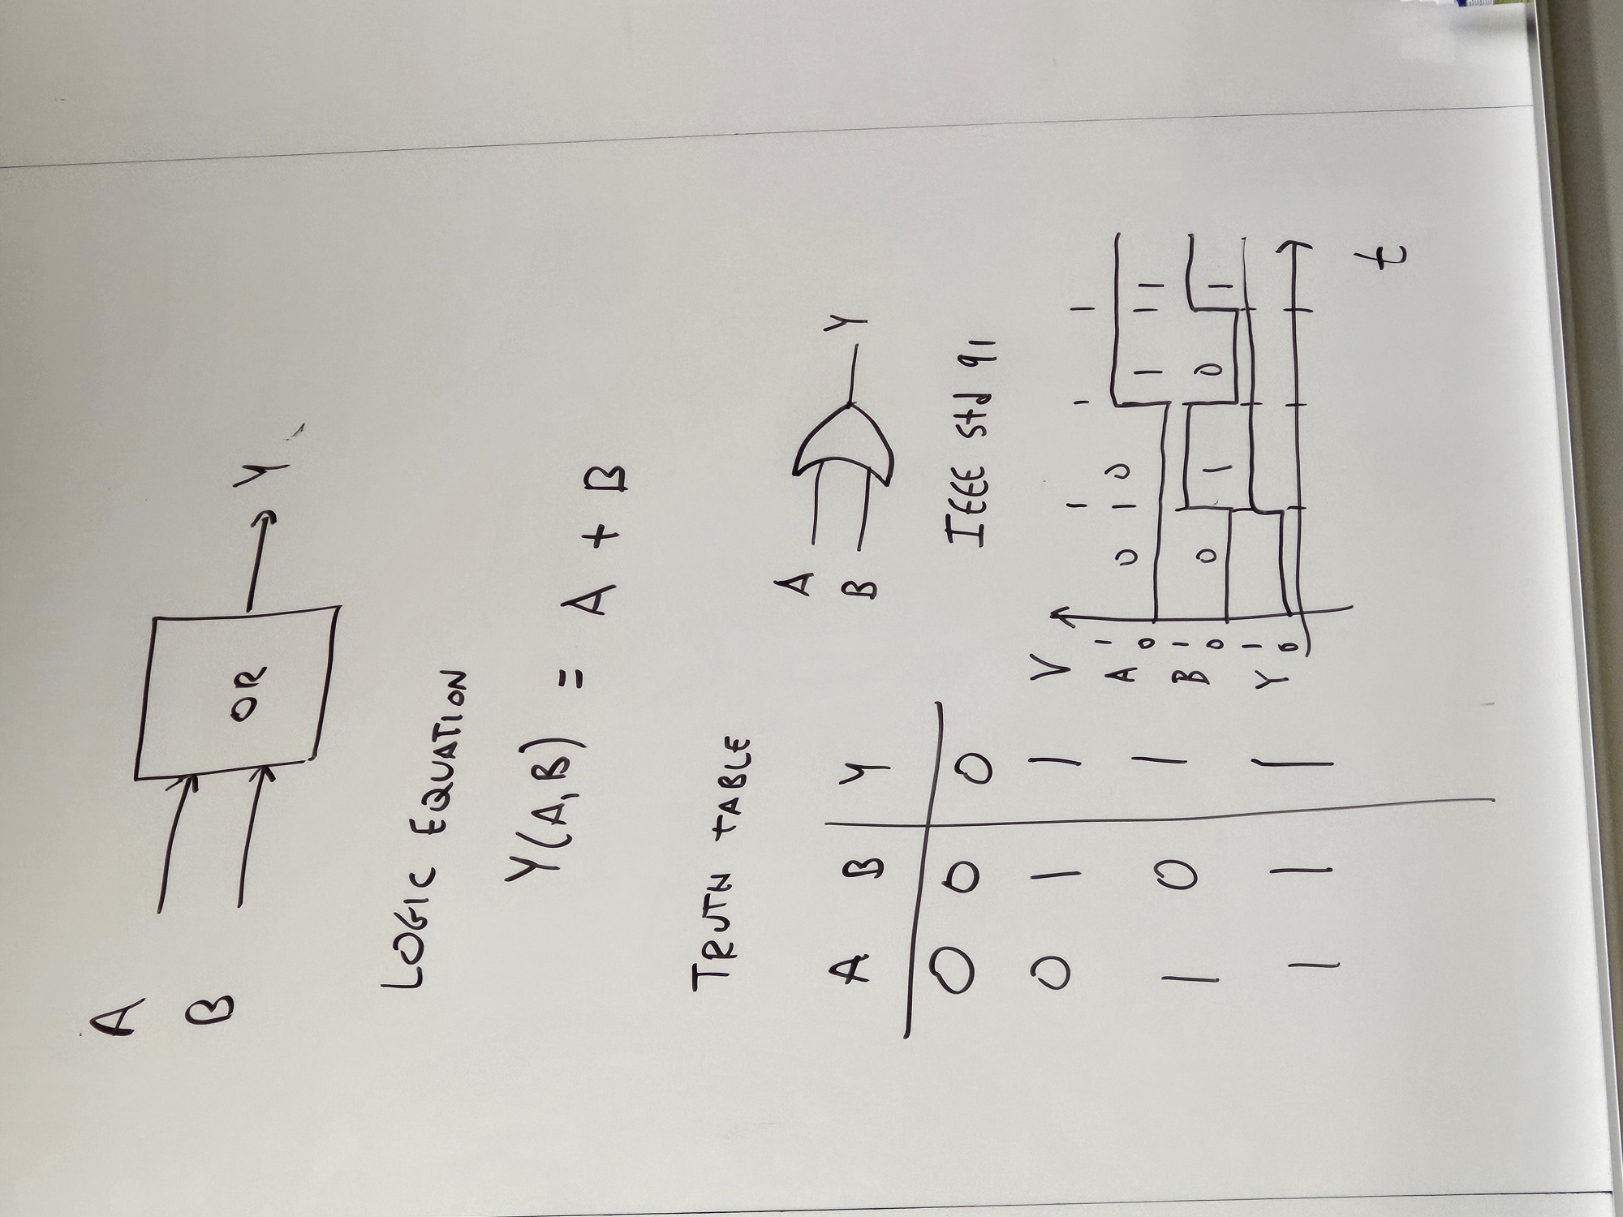 A
B
OR
Y
LOGIC EQUATION
Y(A,B) = A + B
TRUTH TABLE
A B Y
0 0 0
0 1 1
1 0 1
1 1 1
A
B
Y
IEEE Std 91
V
A 1 0
0 0 1 1
B 1 0
0 1 0 1
Y 1 0
t